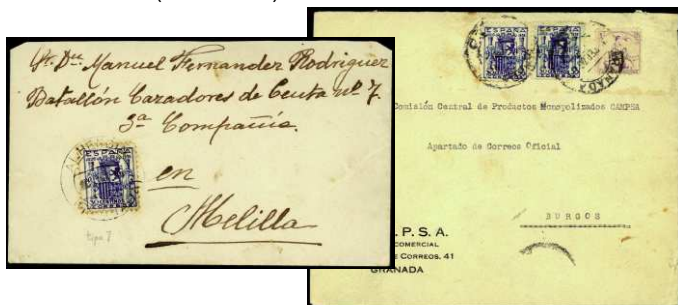 Sr. Dn. Manuel Fernandez Rodriguez
Batallón Cazadores de Ceuta nº 7.
3ª Compañia.
en
Melilla
ESPAÑA
tipo 7
ESPAÑA
ESPAÑA
GRANADA
Comisión Central de Productos Monopolizados CAMPSA
Apartado de Correos Oficial
BURGOS
. P. S. A.
COMERCIAL
E CORREOS, 41
GRANADA